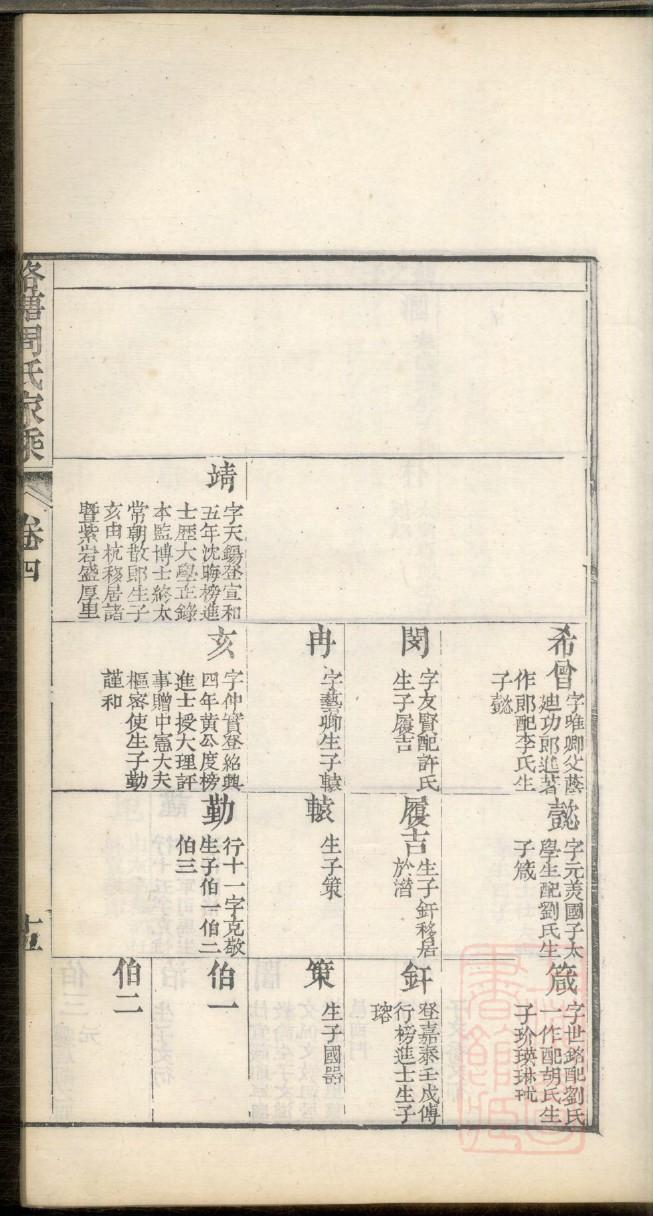 希曾
字唯卿父蔭
廸功郎進著
作郎配李氏生
子懿
閔
字友賢配許氏
生子履吉
冉
字藝卿生子轅
靖
字天錫登宣和
五年沈晦榜進
士歴大學正錄
本監博士終太
常朝散郎生子
亥由杭移居諸
曁紫岩盛厚里
亥
字仲實登紹興
四年黄公度榜
進士授大理評
事贈中憲大夫
樞密使生子勤
謹和
懿
字元美國子太
學生配劉氏生
子箴
履吉
生子釬移居
於潛
轅
生子策
勤
行十一字克敬
生子伯一伯二
伯三
箴
字世銘配劉氏
一作配胡氏生
子玠瑛琳珷
釬
登嘉泰壬戌傅
行榜進士生子
瑢
策
生子國器
伯一
伯二
周氏家乘
卷四